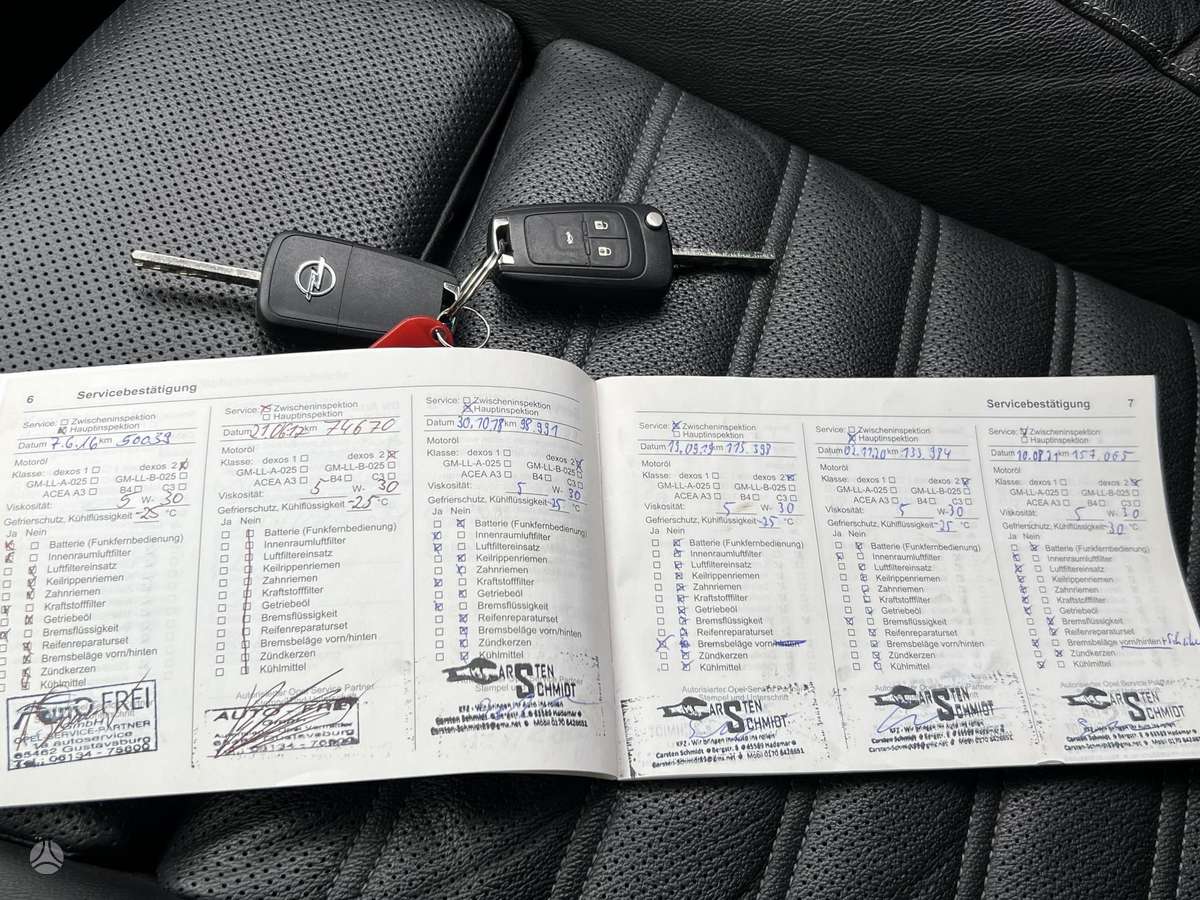 6 Servicebestätigung
Service: Zwischeninspektion
Hauptinspektion
Datum 7.6.16 km 50039
Motoröl
Klasse: dexos 1 dexos 2
GM-LL-A-025 GM-LL-B-025
ACEA A3 B4 C3
Viskosität: 5 W- 30
Gefrierschutz, Kühlflüssigkeit -25 °C
Ja Nein
Batterie (Funkfernbedienung)
Innenraumluftfilter
Luftfiltereinsatz
Keilrippenriemen
Zahnriemen
Kraftstofffilter
Getriebeöl
Bremsflüssigkeit
Reifenreparaturset
Bremsbeläge vorn/hinten
Zündkerzen
Kühlmittel
AUTO FREI
GmbH
OPEL SERVICE-PARTNER
autoservice
65462 Gustavsburg
Tel.: 06134 -
Service: Zwischeninspektion
Hauptinspektion
Datum 21.06.17 km 74670
Motoröl
Klasse: dexos 1 dexos 2
GM-LL-A-025 GM-LL-B-025
ACEA A3 B4 C3
Viskosität: 5 W- 30
Gefrierschutz, Kühlflüssigkeit -25 °C
Ja Nein
Batterie (Funkfernbedienung)
Innenraumluftfilter
Luftfiltereinsatz
Keilrippenriemen
Zahnriemen
Kraftstofffilter
Getriebeöl
Bremsflüssigkeit
Reifenreparaturset
Bremsbeläge vorn/hinten
Zündkerzen
Kühlmittel
Autorisierter Opel Service Partner
AUTO FREI
Service: Zwischeninspektion
Hauptinspektion
Datum 30.10.18 km 98 991
Motoröl
Klasse: dexos 1 dexos 2
GM-LL-A-025 GM-LL-B-025
ACEA A3 B4 C3
Viskosität: 5 W- 30
Gefrierschutz, Kühlflüssigkeit -25 °C
Ja Nein
Batterie (Funkfernbedienung)
Innenraumluftfilter
Luftfiltereinsatz
Keilrippenriemen
Zahnriemen
Kraftstofffilter
Getriebeöl
Bremsflüssigkeit
Reifenreparaturset
Bremsbeläge vorn/hinten
Zündkerzen
Kühlmittel
CARSTEN
SCHMIDT
KFZ - Wir bringen Ihr Auto ins rollen
Carsten Schmidt Bergstr. 6 65589 Hadamar
Mobil 0170 8428652
Servicebestätigung 7
Service: Zwischeninspektion
Hauptinspektion
Datum 13.09.19 km 115 398
Motoröl
Klasse: dexos 1 dexos 2
GM-LL-A-025 GM-LL-B-025
ACEA A3 B4 C3
Viskosität: 5 W- 30
Gefrierschutz, Kühlflüssigkeit -25 °C
Ja Nein
Batterie (Funkfernbedienung)
Innenraumluftfilter
Luftfiltereinsatz
Keilrippenriemen
Zahnriemen
Kraftstofffilter
Getriebeöl
Bremsflüssigkeit
Reifenreparaturset
Bremsbeläge vorn/hinten
Zündkerzen
Kühlmittel
Autorisierter Opel Service Partner
Stempel und Unterschrift
CARSTEN
SCHMIDT
KFZ - Wir bringen Ihr Auto ins rollen
Carsten Schmidt Bergstr. 6 65589 Hadamar
Mobil 0170 8428652
Service: Zwischeninspektion
Hauptinspektion
Datum 02.11.20 km 133 984
Motoröl
Klasse: dexos 1 dexos 2
GM-LL-A-025 GM-LL-B-025
ACEA A3 B4 C3
Viskosität: 5 W- 30
Gefrierschutz, Kühlflüssigkeit -25 °C
Ja Nein
Batterie (Funkfernbedienung)
Innenraumluftfilter
Luftfiltereinsatz
Keilrippenriemen
Zahnriemen
Kraftstofffilter
Getriebeöl
Bremsflüssigkeit
Reifenreparaturset
Bremsbeläge vorn/hinten
Zündkerzen
Kühlmittel
CARSTEN
SCHMIDT
Service: Zwischeninspektion
Hauptinspektion
Datum 10.08.21 km 157.065
Motoröl
Klasse: dexos 1 dexos 2
GM-LL-A-025 GM-LL-B-025
ACEA A3 B4 C3
Viskosität: 5 W- 30
Gefrierschutz, Kühlflüssigkeit -30 °C
Ja Nein
Batterie (Funkfernbedienung)
Innenraumluftfilter
Luftfiltereinsatz
Keilrippenriemen
Zahnriemen
Kraftstofffilter
Getriebeöl
Bremsflüssigkeit
Reifenreparaturset
Bremsbeläge vorn/hinten
Zündkerzen
Kühlmittel
Autorisierter Opel Service Partner
CARSTEN
SCHMIDT